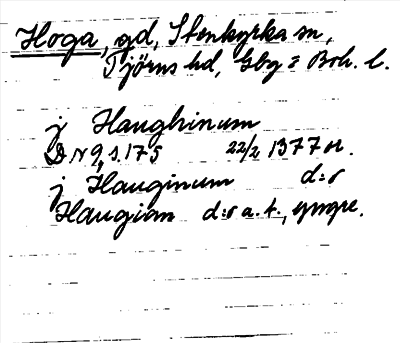 Hoga, gd, Stenkyrka sn,
Tjörns hd, Gbg o Boh. l.
j Haughinum
DN 9, s. 175 22/2 1377 or.
j Hauginum d:o
Haugian d:o a.t.,